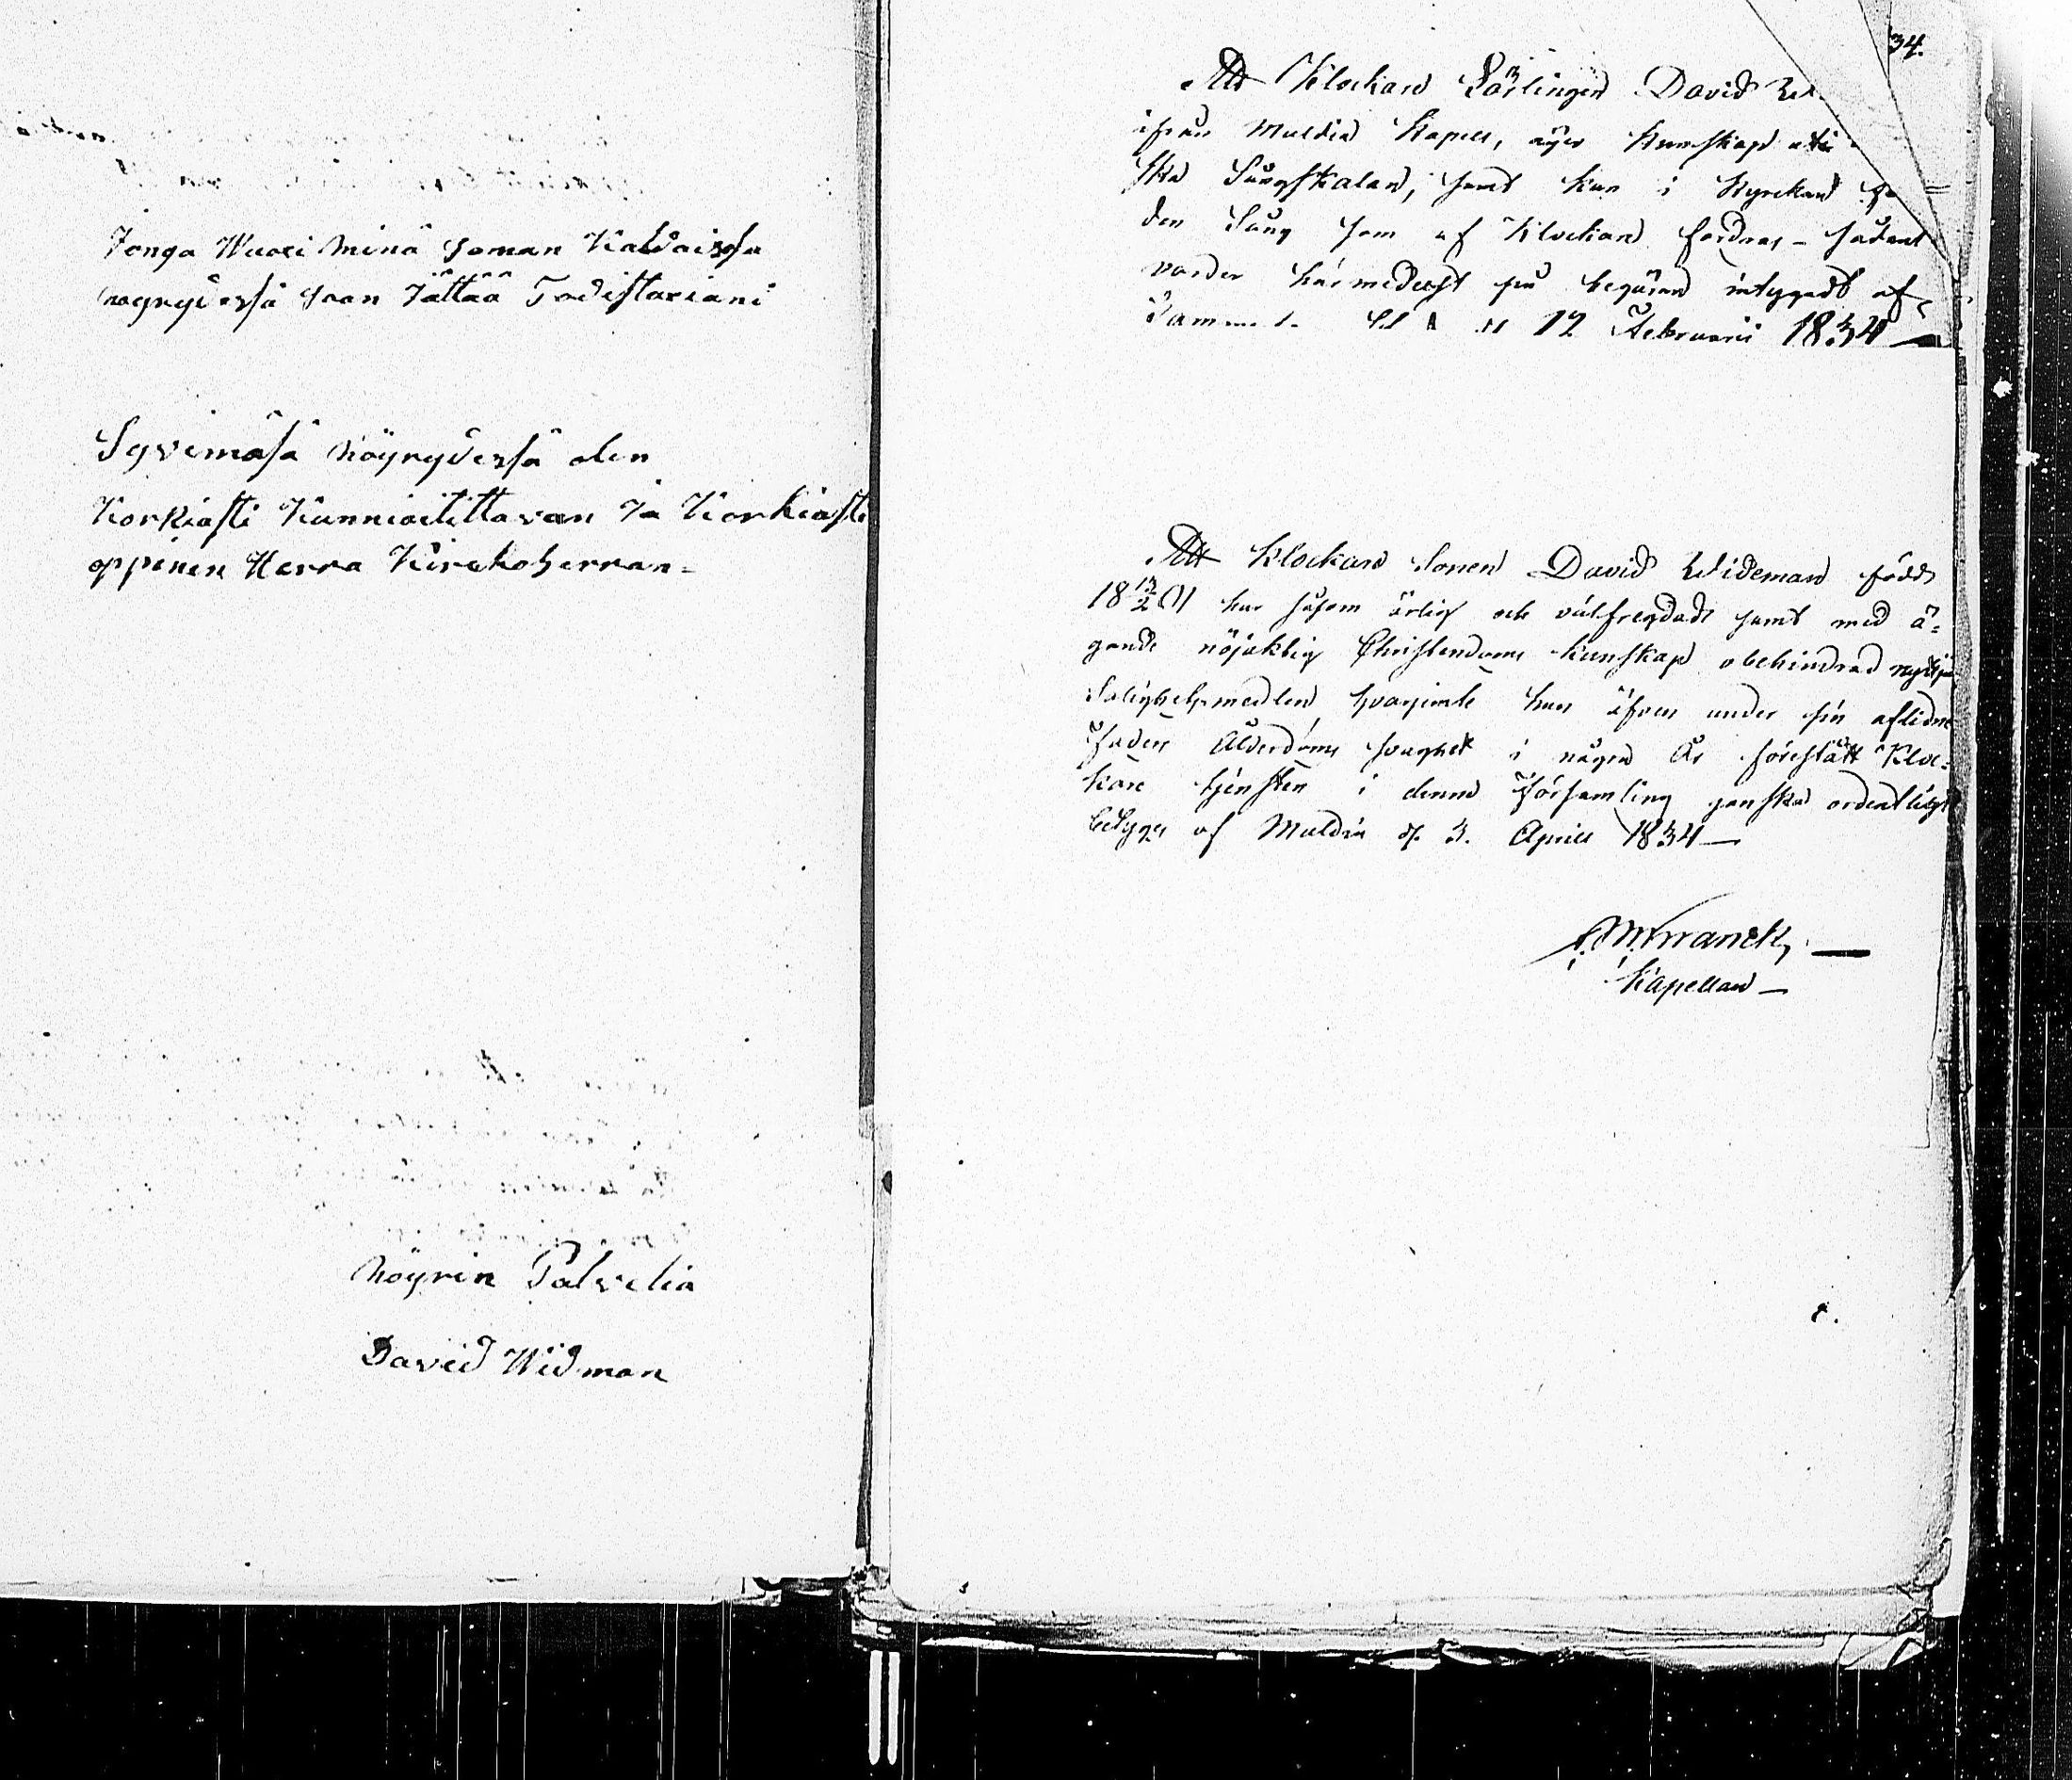 Jonga Wuoxi minä saman Kaldaissa
nöyrydessä saan Jättää Todistaxiani
Syvimäsä nöyrydessä olen
Korkiasti Kunnioitittavan Ja Korkiasti
oppenen Herra Kirckoherran=
nöyrin Palvelia
David Widman
34.
Att Klockare Lärlingen David
ifrån Muldia Kapell, äger Kunskap uti
ska Sångskalan, samt kan i Kyrckan
den Sång som af Klockare fordras - sådant
varder härmedelst på begäran intygadt af
12 Februarii 1834
Att Klockare Sonen David Wideman född
18 13/2 01 har såsom ärlig och välfreydad samt med ä=
gande nöjaktig Christendoms kunskap obehindrad nyttja
Salighetsmedlen, hvarjemte han äfven under sin aflidne
Faders Ålderdoms svaghet i några År förestått Kloc=
kare tjensten i denna Församling ganska ordentligt
betygas af Muldia d. 3. April 1834
Kapellan